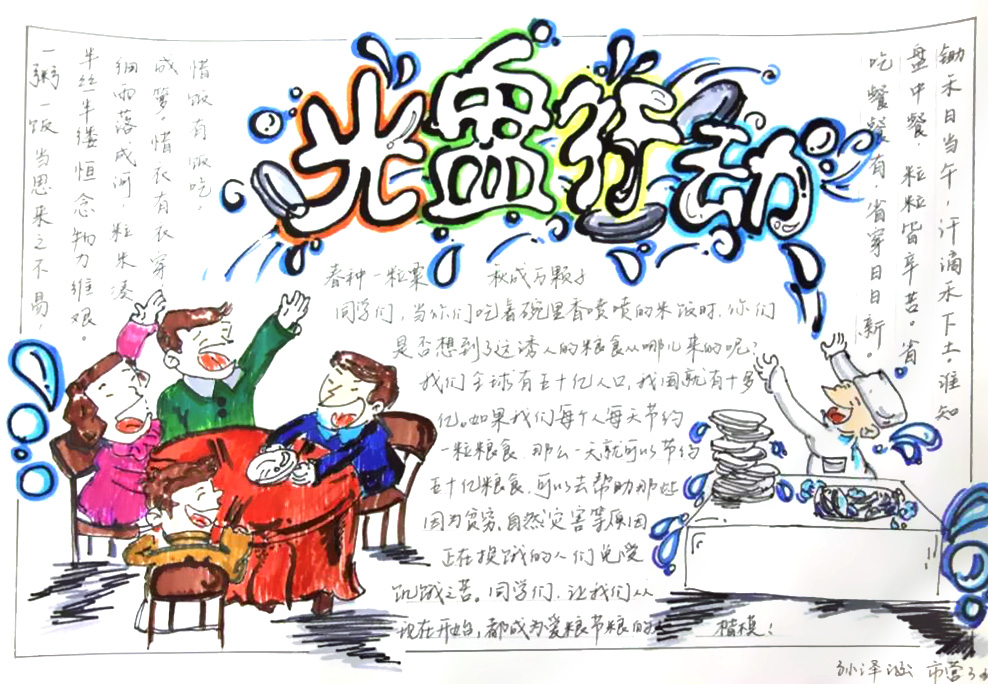 光盘行动
一粥一饭当思来之不易，
半丝半缕恒念物力维艰。
细雨落成河，粒米凑
成箩，惜衣有衣穿，
惜饭有饭吃，
锄禾日当午，汗滴禾下土。谁知
盘中餐，粒粒皆辛苦。省
吃餐餐有，省穿日日新。
春种一粒粟 秋成万颗子
同学们，当你们吃着碗里香喷喷的米饭时，你们
是否想到了这诱人的粮食从哪儿来的呢？
我们全球有五十亿人口，我国就有十多
亿。如果我们每个人每天节约
一粒粮食，那么一天就可以节约
五十亿粮食，可以去帮助那些
因为贫穷，自然灾害等原因
正在挨饿的人们免受
饥饿之苦。同学们，让我们从
现在开始，都成为爱粮节粮的 楷模！
孙泽 市营